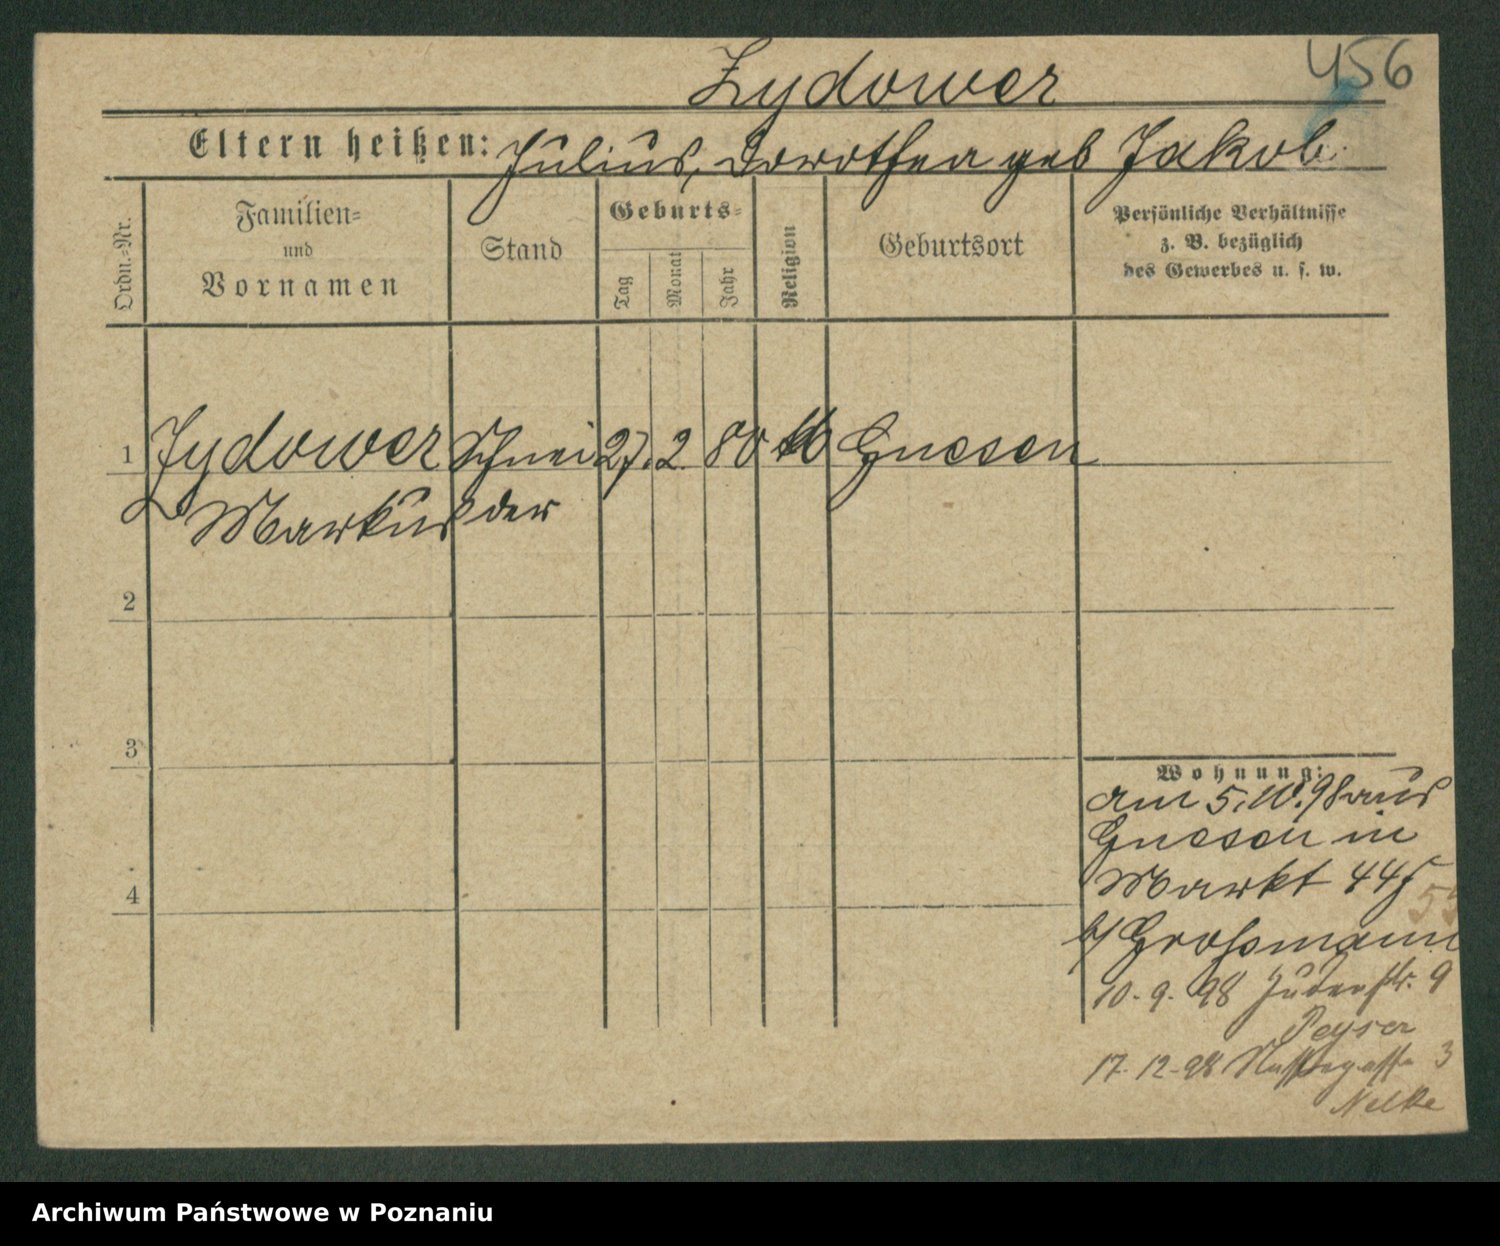 Zydower
456
Eltern heißen: Julius, Dorothea geb Jakob.
Ordn.-Nr.
Familien-
und
Vornamen
Stand
Geburts-
Tag
Monat
Jahr
Religion
Geburtsort
Persönliche Verhältnisse
z. B. bezüglich
des Gewerbes u. s. w.
1 Zydower Schnei 27. 2. 80 Gnesen
Markus der
2
3
4
Wohnung:
am 5. 98 aus
Gnesen in
Markt 44
b/ Großmann
10. 9. 98 Judenstr. 9
Peyser
17. 12. 98 3
Nelke
Archiwum Państwowe w Poznaniu